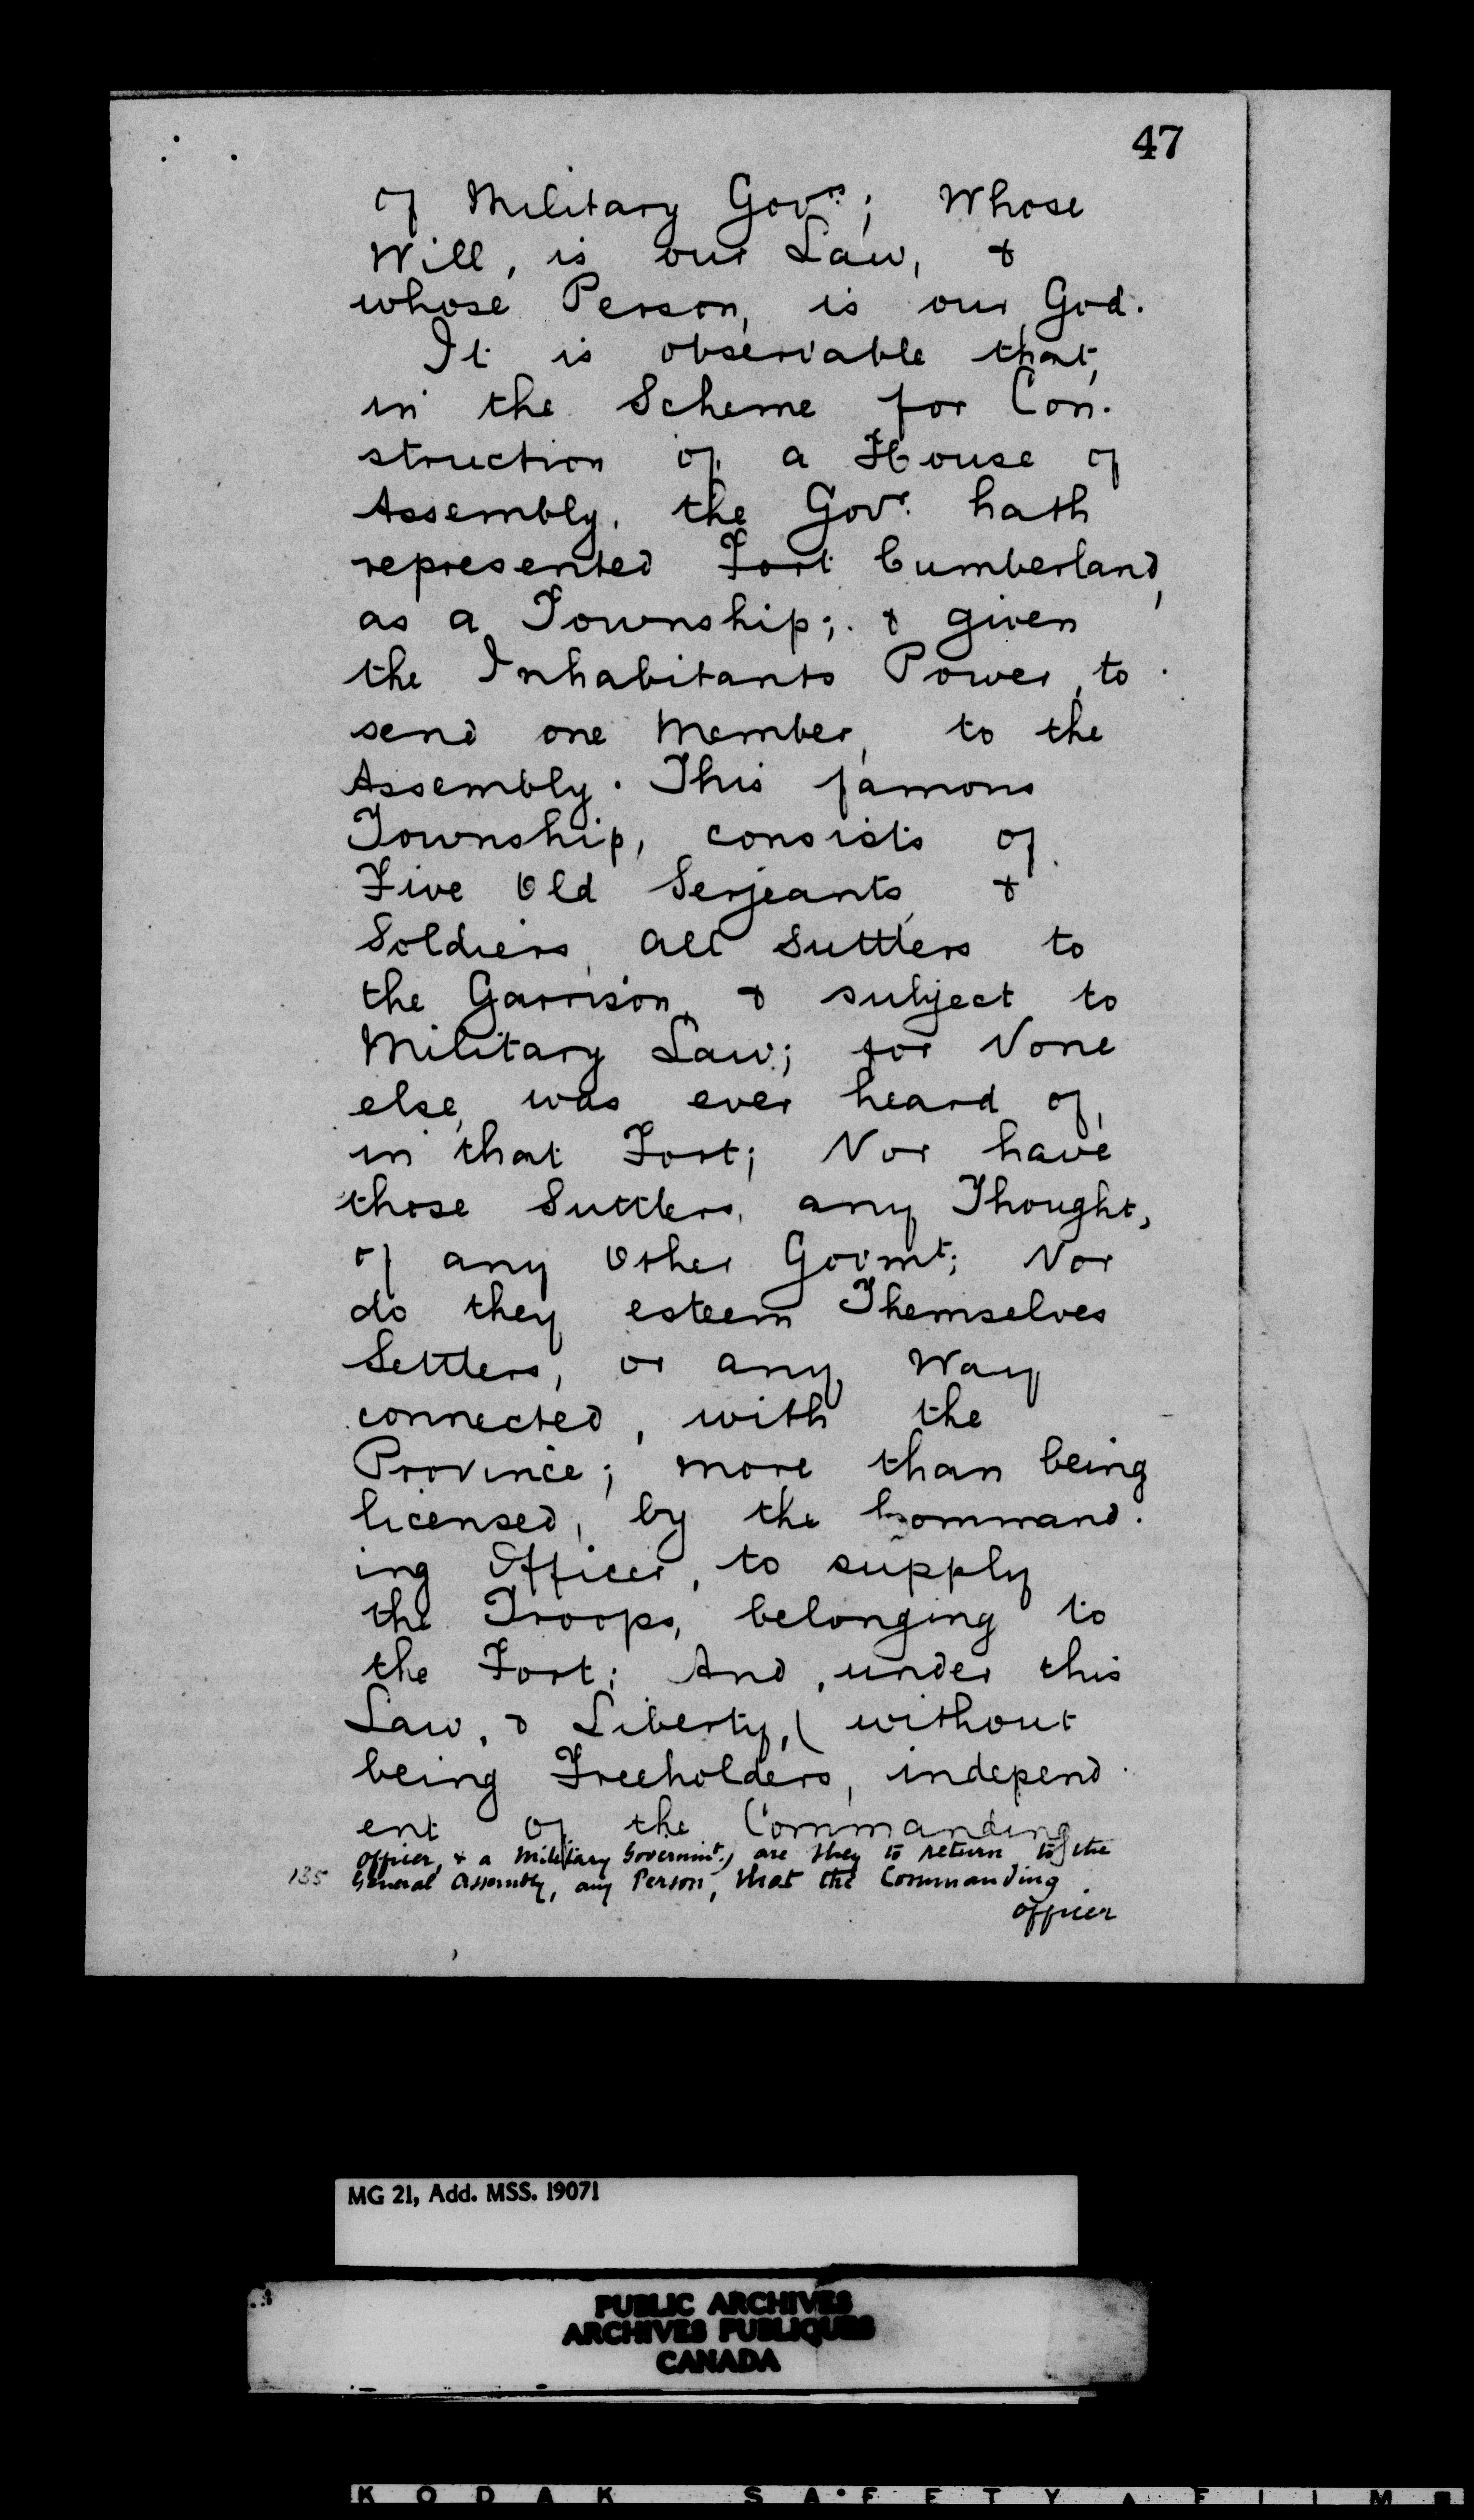 47
of Military Govrs; Whose
Will, is our Law, &
whose Person, is our God.
It is observable that,
in the Scheme for Con-
struction of a House of
Assembly, the Govr. hath
represented Fort Cumberland,
as a Township; & given
the Inhabitants Power, to
send one Member, to the
Assembly. This famous
Township, consists of
Five Old Serjeants, &
Soldiers, all Suttlers to
the Garrison, & subject to
Military Law; for None
else, was ever heard of,
in that Fort; Nor have
those Suttlers, any Thought,
of any Other Govmt; Nor
do they esteem Themselves
Settlers, or any Way
connected, with the
Province; more than being
licensed, by the Command-
ing Officer, to supply
the Troops, belonging to
the Fort; And, under this
Law, & Liberty, (without
being Freeholders, independ-
ent of the Commanding
officer, & a Military Governmt.) are they to return to the
135 General Assembly, any Person, that the Commanding
officer
MG 21, Add. MSS. 19071
PUBLIC ARCHIVES
ARCHIVES PUBLIQUES
CANADA
KODAK SAFETY FILM